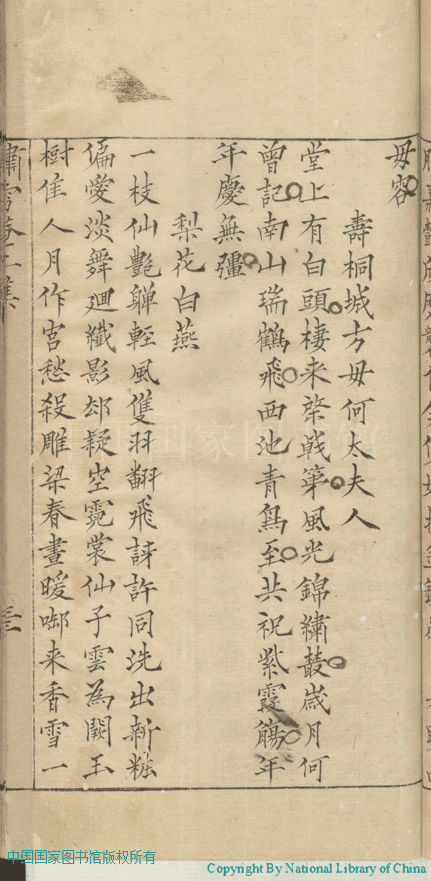 毋容
壽桐城方母何太夫人
堂上有白頭棲来棨戟第風光錦繡鼓歲月何
曾記南山瑞鶴飛西池青鳥至共祝紫霞觴年
年慶無彊
梨花白燕
一枝仙艷亸輊風隻羽翻飛訝許同洗出新糚
偏愛淡舞迴纖影却疑空霓裳仙子雲為闕玉
樹佳人月作宫愁殺雕梁春晝暖啣来香雪一
中国国家图书馆版权所有
Copyright By National Library of China